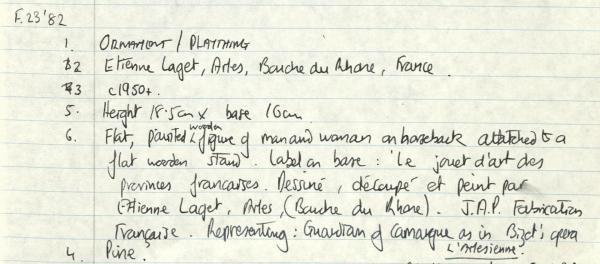 F.23'82
1. ORNAMENT / PLAYTHING
2 Etienne Laget, Arles, Bouche du Rhone, France.
3 c1950+.
5. Height 18.5cm x base 16cm.
6. Flat, painted wooden figure of man and woman on horseback attatched to a
flat wooden stand. Label on base: 'Le jouet d'art des
provinces francaises. Dessiné, découpé et peint par
Etienne Laget, Arles, (Bouche du Rhone). J.A.P. Fabrication
Française. Representing: Guardian of Camargue as in Bizet's opera
L'Arlesienne.
4. Pine.